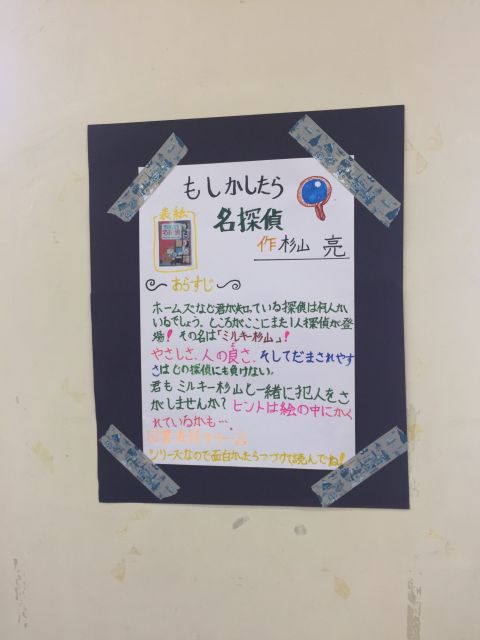 もしかしたら
名探偵
表紙
作 杉山 亮
あらすじ
ホームズなど君が知っている探偵は何人か
いるでしょう。ところがここにまた1人探偵が登
場!その名は「ミルキー杉山」!
やさしさ、人の良さ、そしてだまされやす
さはどの探偵にも負けない。
君もミルキー杉山と一緒に犯人をさ
がしませんか?ヒントは絵の中にかく
れているかも…。
シリーズなので面白かったらつづけて読んでね!